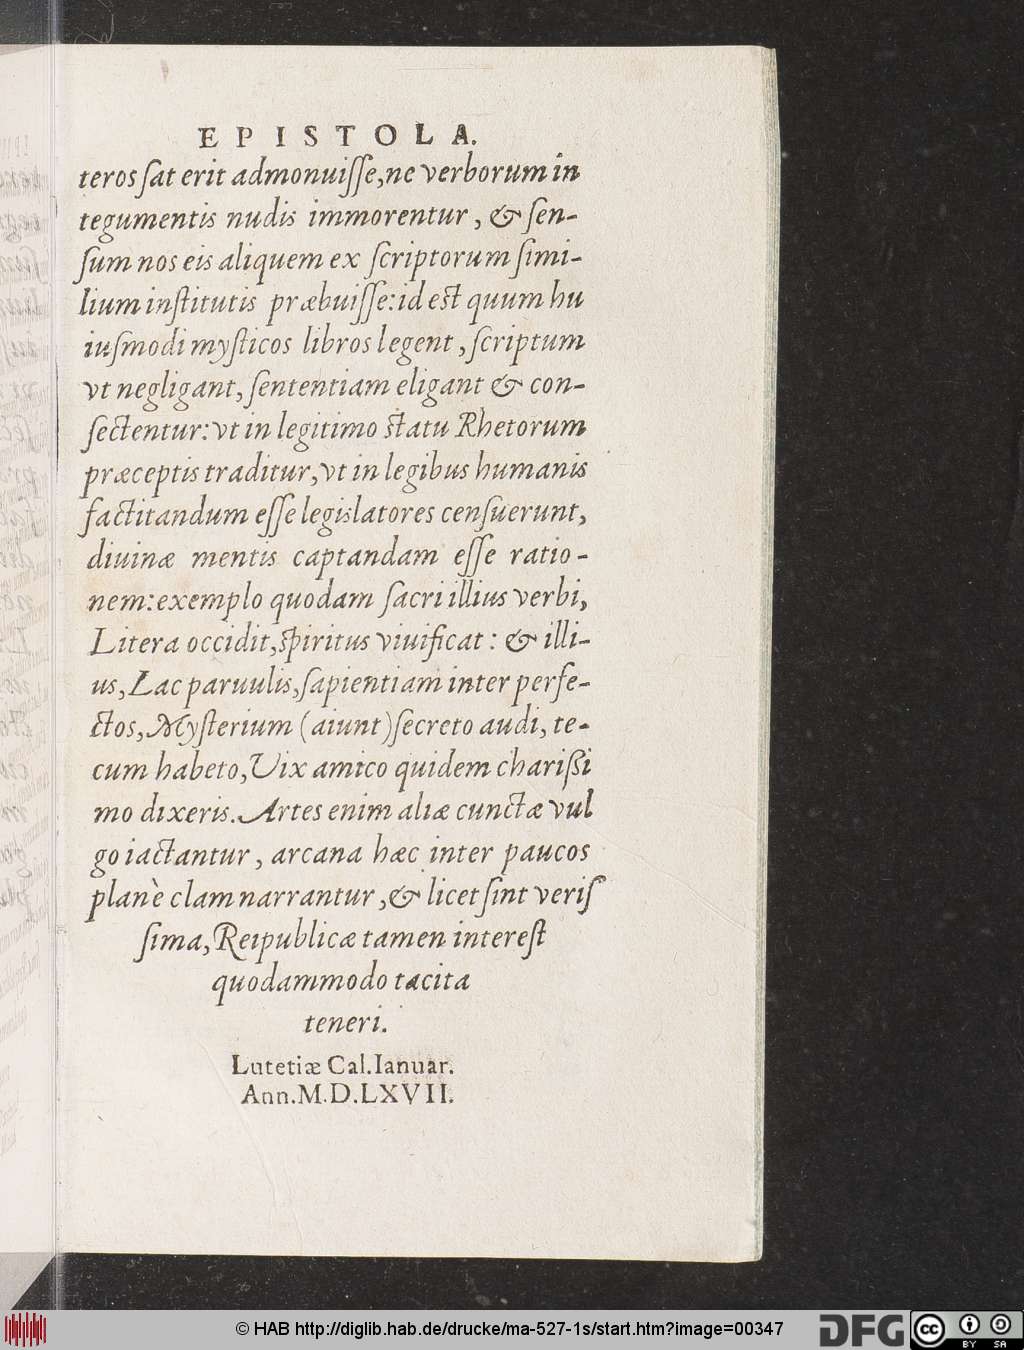 EPISTOLA.
teros sat erit admonuisse, ne verborum in
tegumentis nudis immorentur, & sen-
sum nos eis aliquem ex scriptorum simi-
lium institutis præbuisse: id est quum hu
iusmodi mysticos libros legent, scriptum
vt negligant, sententiam eligant & con-
sectentur: vt in legitimo statu Rhetorum
præceptis traditur, vt in legibus humanis
factitandum esse legislatores censuerunt,
diuinæ mentis captandam esse ratio-
nem: exemplo quodam sacri illius verbi,
Litera occidit, spiritus viuificat: & illi-
us, Lac paruulis, sapientiam inter perfe-
ctos, Mysterium (aiunt) secreto audi, te-
cum habeto, Vix amico quidem charißi
mo dixeris. Artes enim aliæ cunctæ vul
go iactantur, arcana hæc inter paucos
planè clam narrantur, & licet sint veris
sima, Reipublicæ tamen interest
quodammodo tacita
teneri.
Lutetiæ Cal. Ianuar.
Ann. M. D. LXVII.
© HAB http://diglib.hab.de/drucke/ma-527-1s/start.htm?image=00347
DFG
cc BY SA